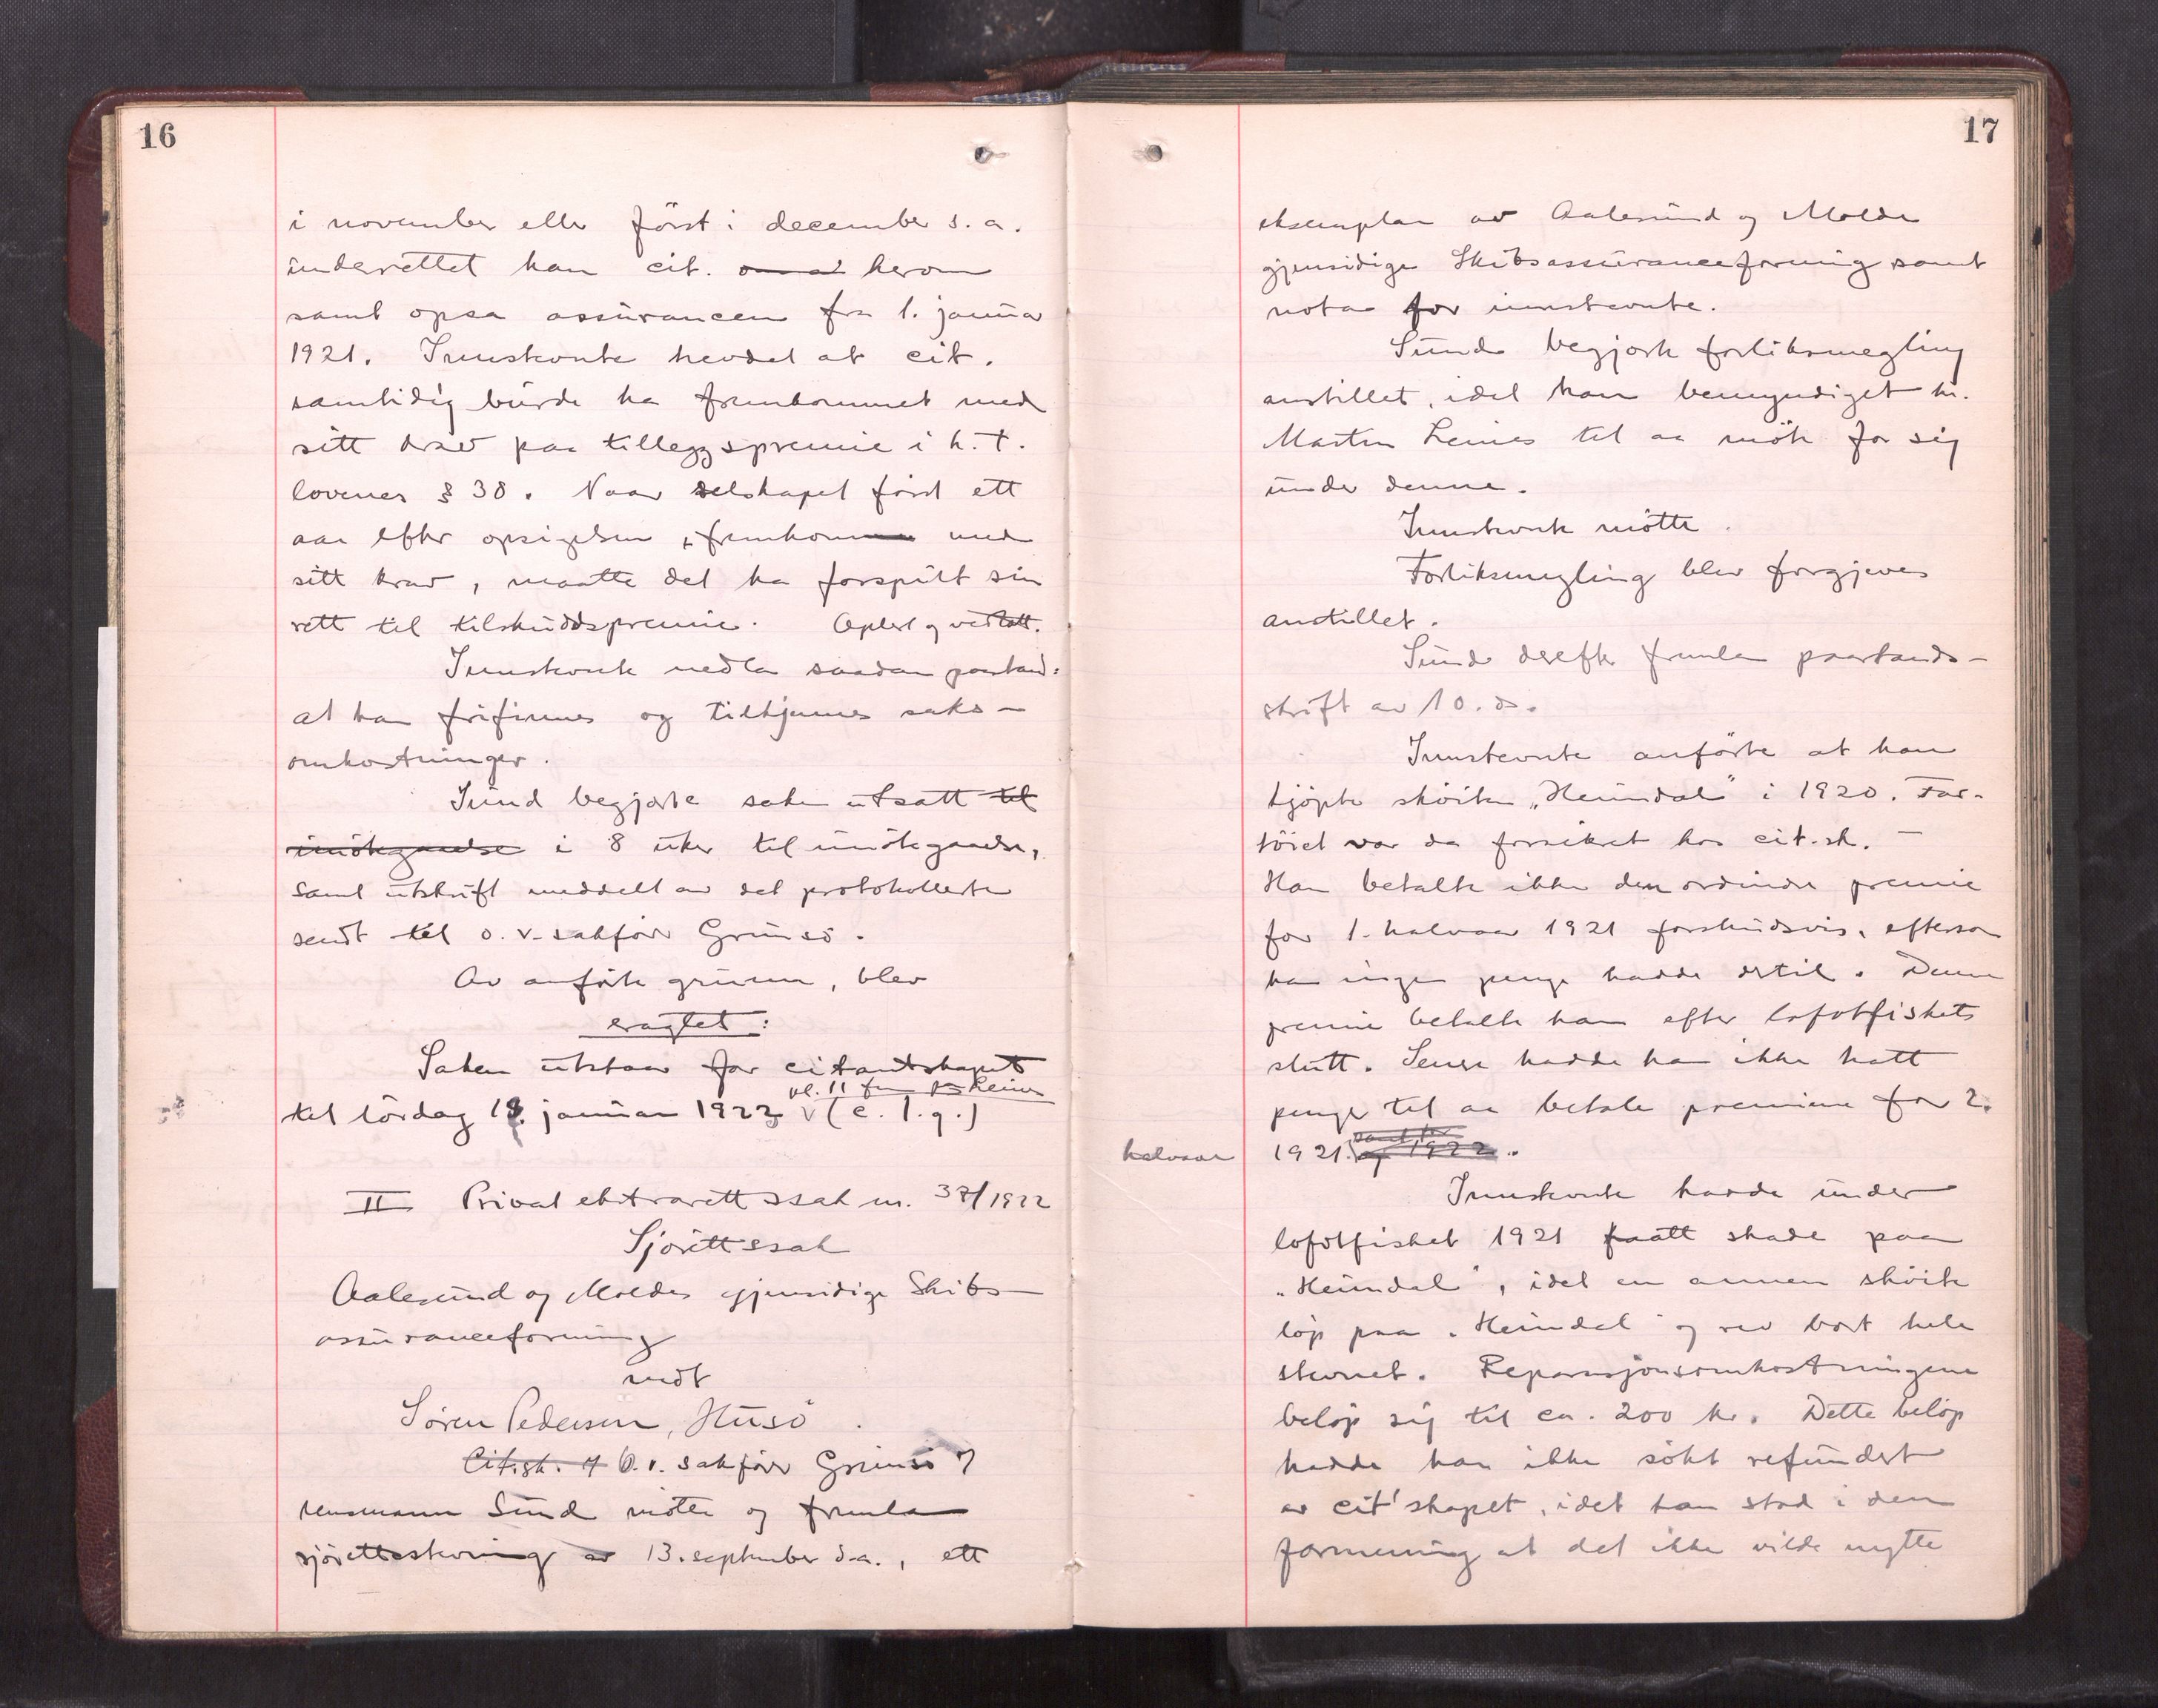 16
i november eller först i december s. a.
underrettet han cit. om at herom
samt opsa assurancen fra 1. januar
1921. Innstevnte hevdet at cit.
samtidig burde ha fremkommet med
sitt krav paa tilleggspremie i h. t.
lovenes § 38. Naar selskapet först ett
aar efter opsigelsen fremkommer med
sitt krav, maatte det ha forspilt sin
rett til tilskuddspremie. Oplest og vedtatt.
Innstevnte nedla saadan paastand:
at han frifinnes og tilkjennes saks-
omkostninger.
Sund begjærte saken utsatt til
imötegaaelse i 8 uker til imötegaaelse,
samt utskrift meddelt av det protokollerte
sendt til o. r. sakförer Grimsö.
Av anförte grunner, blev
eragtet:
Saken utstaar for citantskapet
kl. 11 fm paa Leines
til lördag 13. januar 1923 V (e. l. g.)
II Privat ekstrarettssak nr. 37/1922
Sjörettssak
Aalesund og Moldes gjensidige Skibs-
assuranceforening
mot
Sören Pedersen, Husö.
Cit.sk. v/ O.r. sakförer Grimsö v/
lensmann Sund mötte og fremla
sjörettsstevning av 13. september d.a., ett
17
eksemplar av Aalesund og Molde
gjensidige Skibsassuranceforening samt
nota for innstevnte.
Sund begjærte forliksmegling
anstillet, idet han bemyndiget hr.
Martin Leines til aa möte for sig
under denne.
Innstevnte mötte.
Forliksmegling blev forgjeves
anstillet.
Sund derefter fremla paastands-
skrift av 10. ds.
Innstevnte anförte at han
kjöpte sköiten "Heimdal" i 1920. Far-
töiet var da forsikret hos cit.sk. -
Han betalte ikke den ordinære premie
for 1. halvaar 1921 forskudsvis, eftersom
han ingen penge hadde dertil. Denne
premie betalte han efter lofotfiskets
slutt. Senere hadde han ikke hatt
penger til aa betale premien for 2.
halvaar 1921. samt for og 1922.
Innstevnte hadde under
lofotfisket 1921 faatt skade paa
"Heimdal", idet en annen sköite
löp paa "Heimdal" og rev bort hele
stevnet. Reparasjonsomkostningene
belöp sig til ca. 200 kr. Dette belöp
hadde han ikke sökt refundert
av cit'skapet, idet han stod i den
formening at det ikke vilde nytte